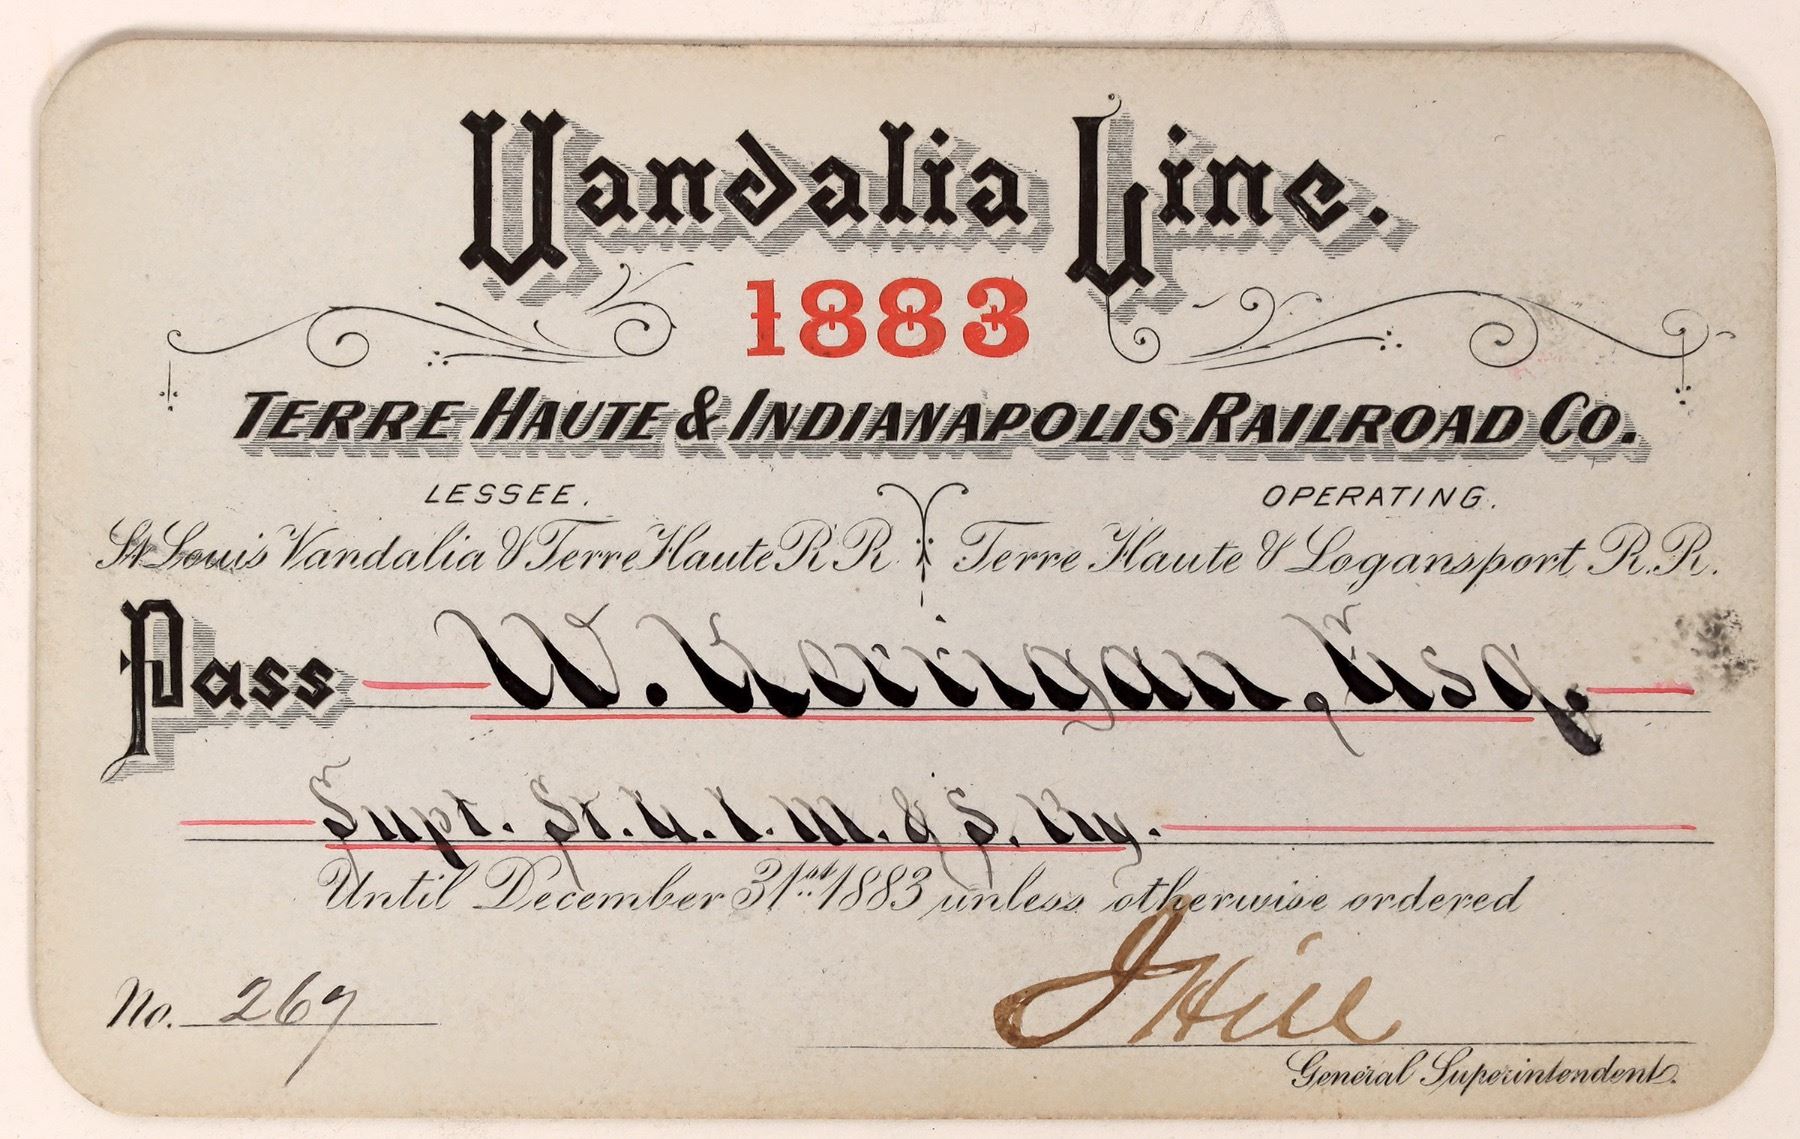 Vandalia Line.
1883
TERRE HAUTE & INDIANAPOLIS RAILROAD CO.
LESSEE. OPERATING.
St Louis Vandalia & Terre Haute R R Terre Haute & Logansport R.R.
Pass W. Kerrigan, Esq.
Supt. St. L. I. M. & S. Ry.
Until December 31st 1883 unless otherwise ordered
No. 267
J Hill
General Superintendent.